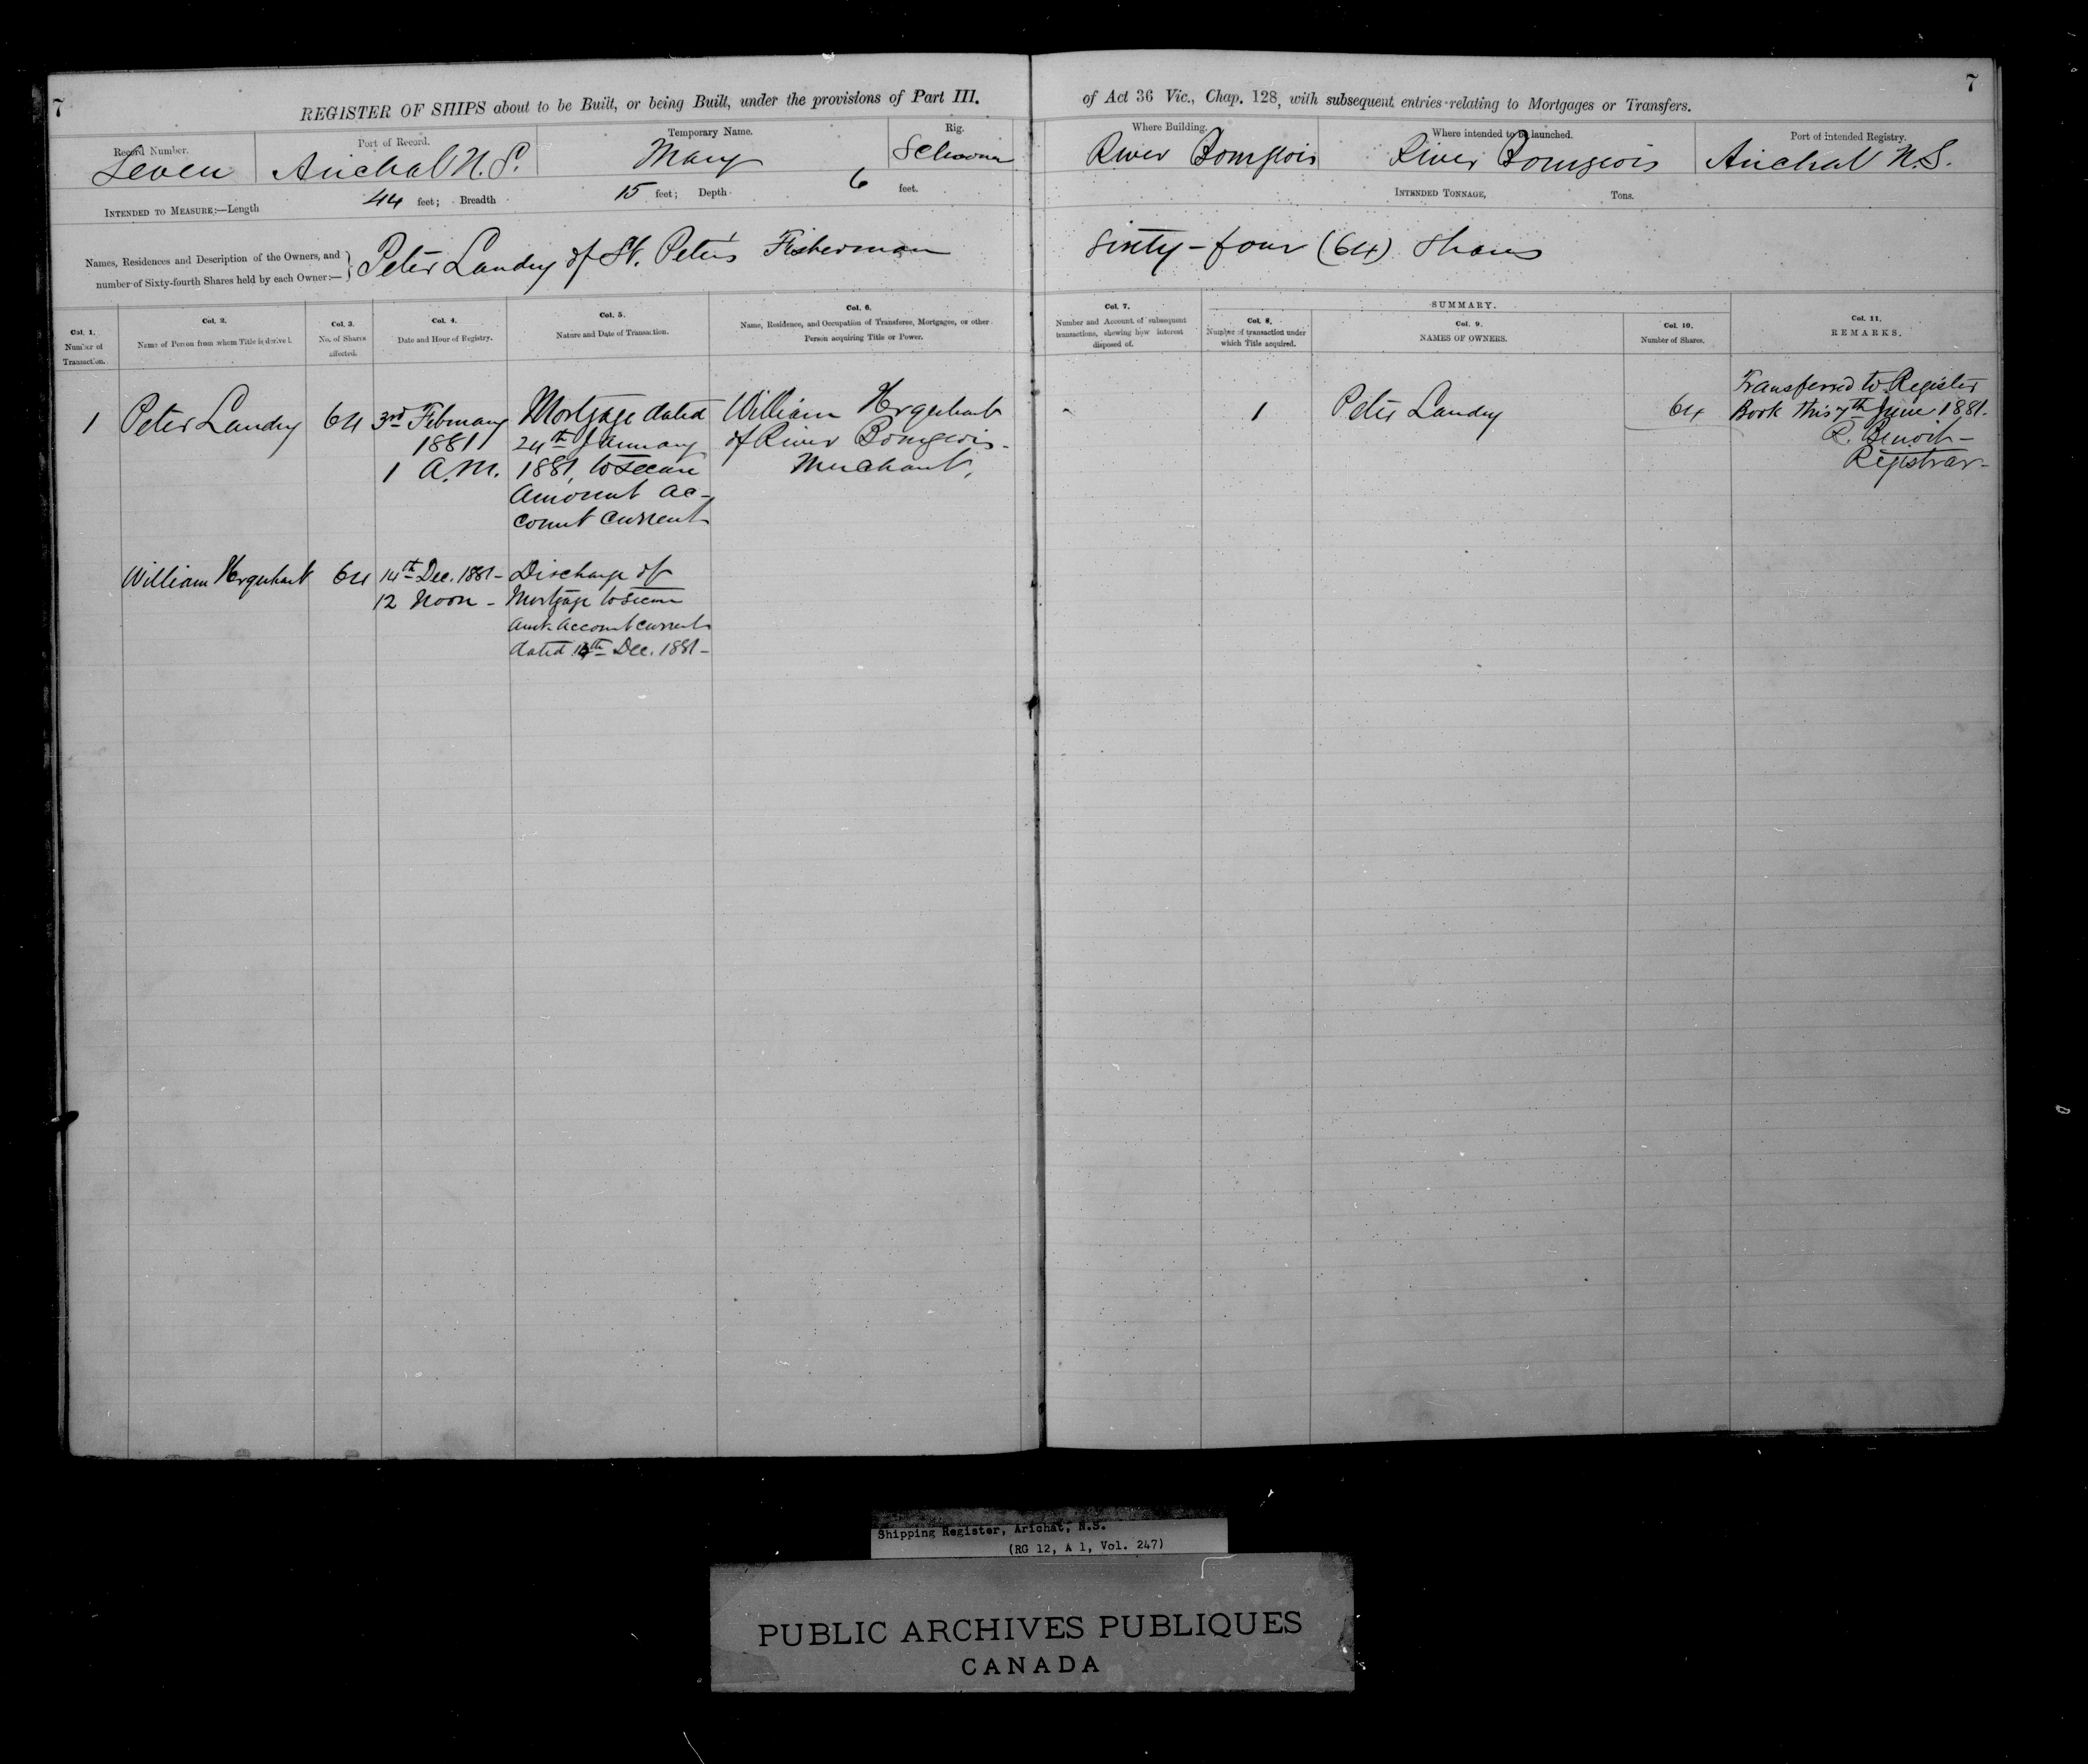 7
REGISTER OF SHIPS about to be Built, or being Built, under the provisions of Part III.
of Act 36 Vic., Chap. 128, with subsequent entries relating to Mortgages or Transfers.
7
Record Number.
Seven
Port of Record.
Arichat N.S.
Temporary Name.
Mary
Rig.
Schooner
Where Building.
River Bourgeois
Where intended to be launched.
River Bourgeois
Port of intended Registry.
Arichat N.S.
INTENDED TO MEASURE:—Length 44 feet; Breadth 15 feet; Depth 6 feet.
INTENDED TONNAGE, Tons.
Names, Residences and Description of the Owners, and
number of Sixty-fourth Shares held by each Owner:—
Peter Landry of St. Peter's Fisherman
Sixty-four (64) Shares
Col. 1.
Number of
Transaction.
Col. 2.
Name of Person from whom Title is derived.
Col. 3.
No. of Shares
affected.
Col. 4.
Date and Hour of Registry.
Col. 5.
Nature and Date of Transaction.
Col. 6.
Name, Residence, and Occupation of Transferee, Mortgagee, or other
Person acquiring Title or Power.
Col. 7.
Number and Account of subsequent
transactions, shewing how interest
disposed of.
SUMMARY.
Col. 8.
Number of transaction under
which Title acquired.
Col. 9.
NAMES OF OWNERS.
Col. 10.
Number of Shares.
Col. 11.
REMARKS.
1
Peter Landry
64
3rd February
1881
1 A.M.
Mortgage dated
24th January
1881, to secure
amount ac-
count current
William
of River Bourgeois-
Merchant,
1
Peter Landry
64
Transferred to Register
Book this 7th June 1881.
R. Benoit-
Registrar-
William
64
14th Dec. 1881-
12 Noon-
Discharge of
Mortgage to secure
Amt. Account Current
dated Dec. 1881-
Shipping Register, Arichat, N.S.
(RG 12, A 1, Vol. 247)
PUBLIC ARCHIVES PUBLIQUES
CANADA